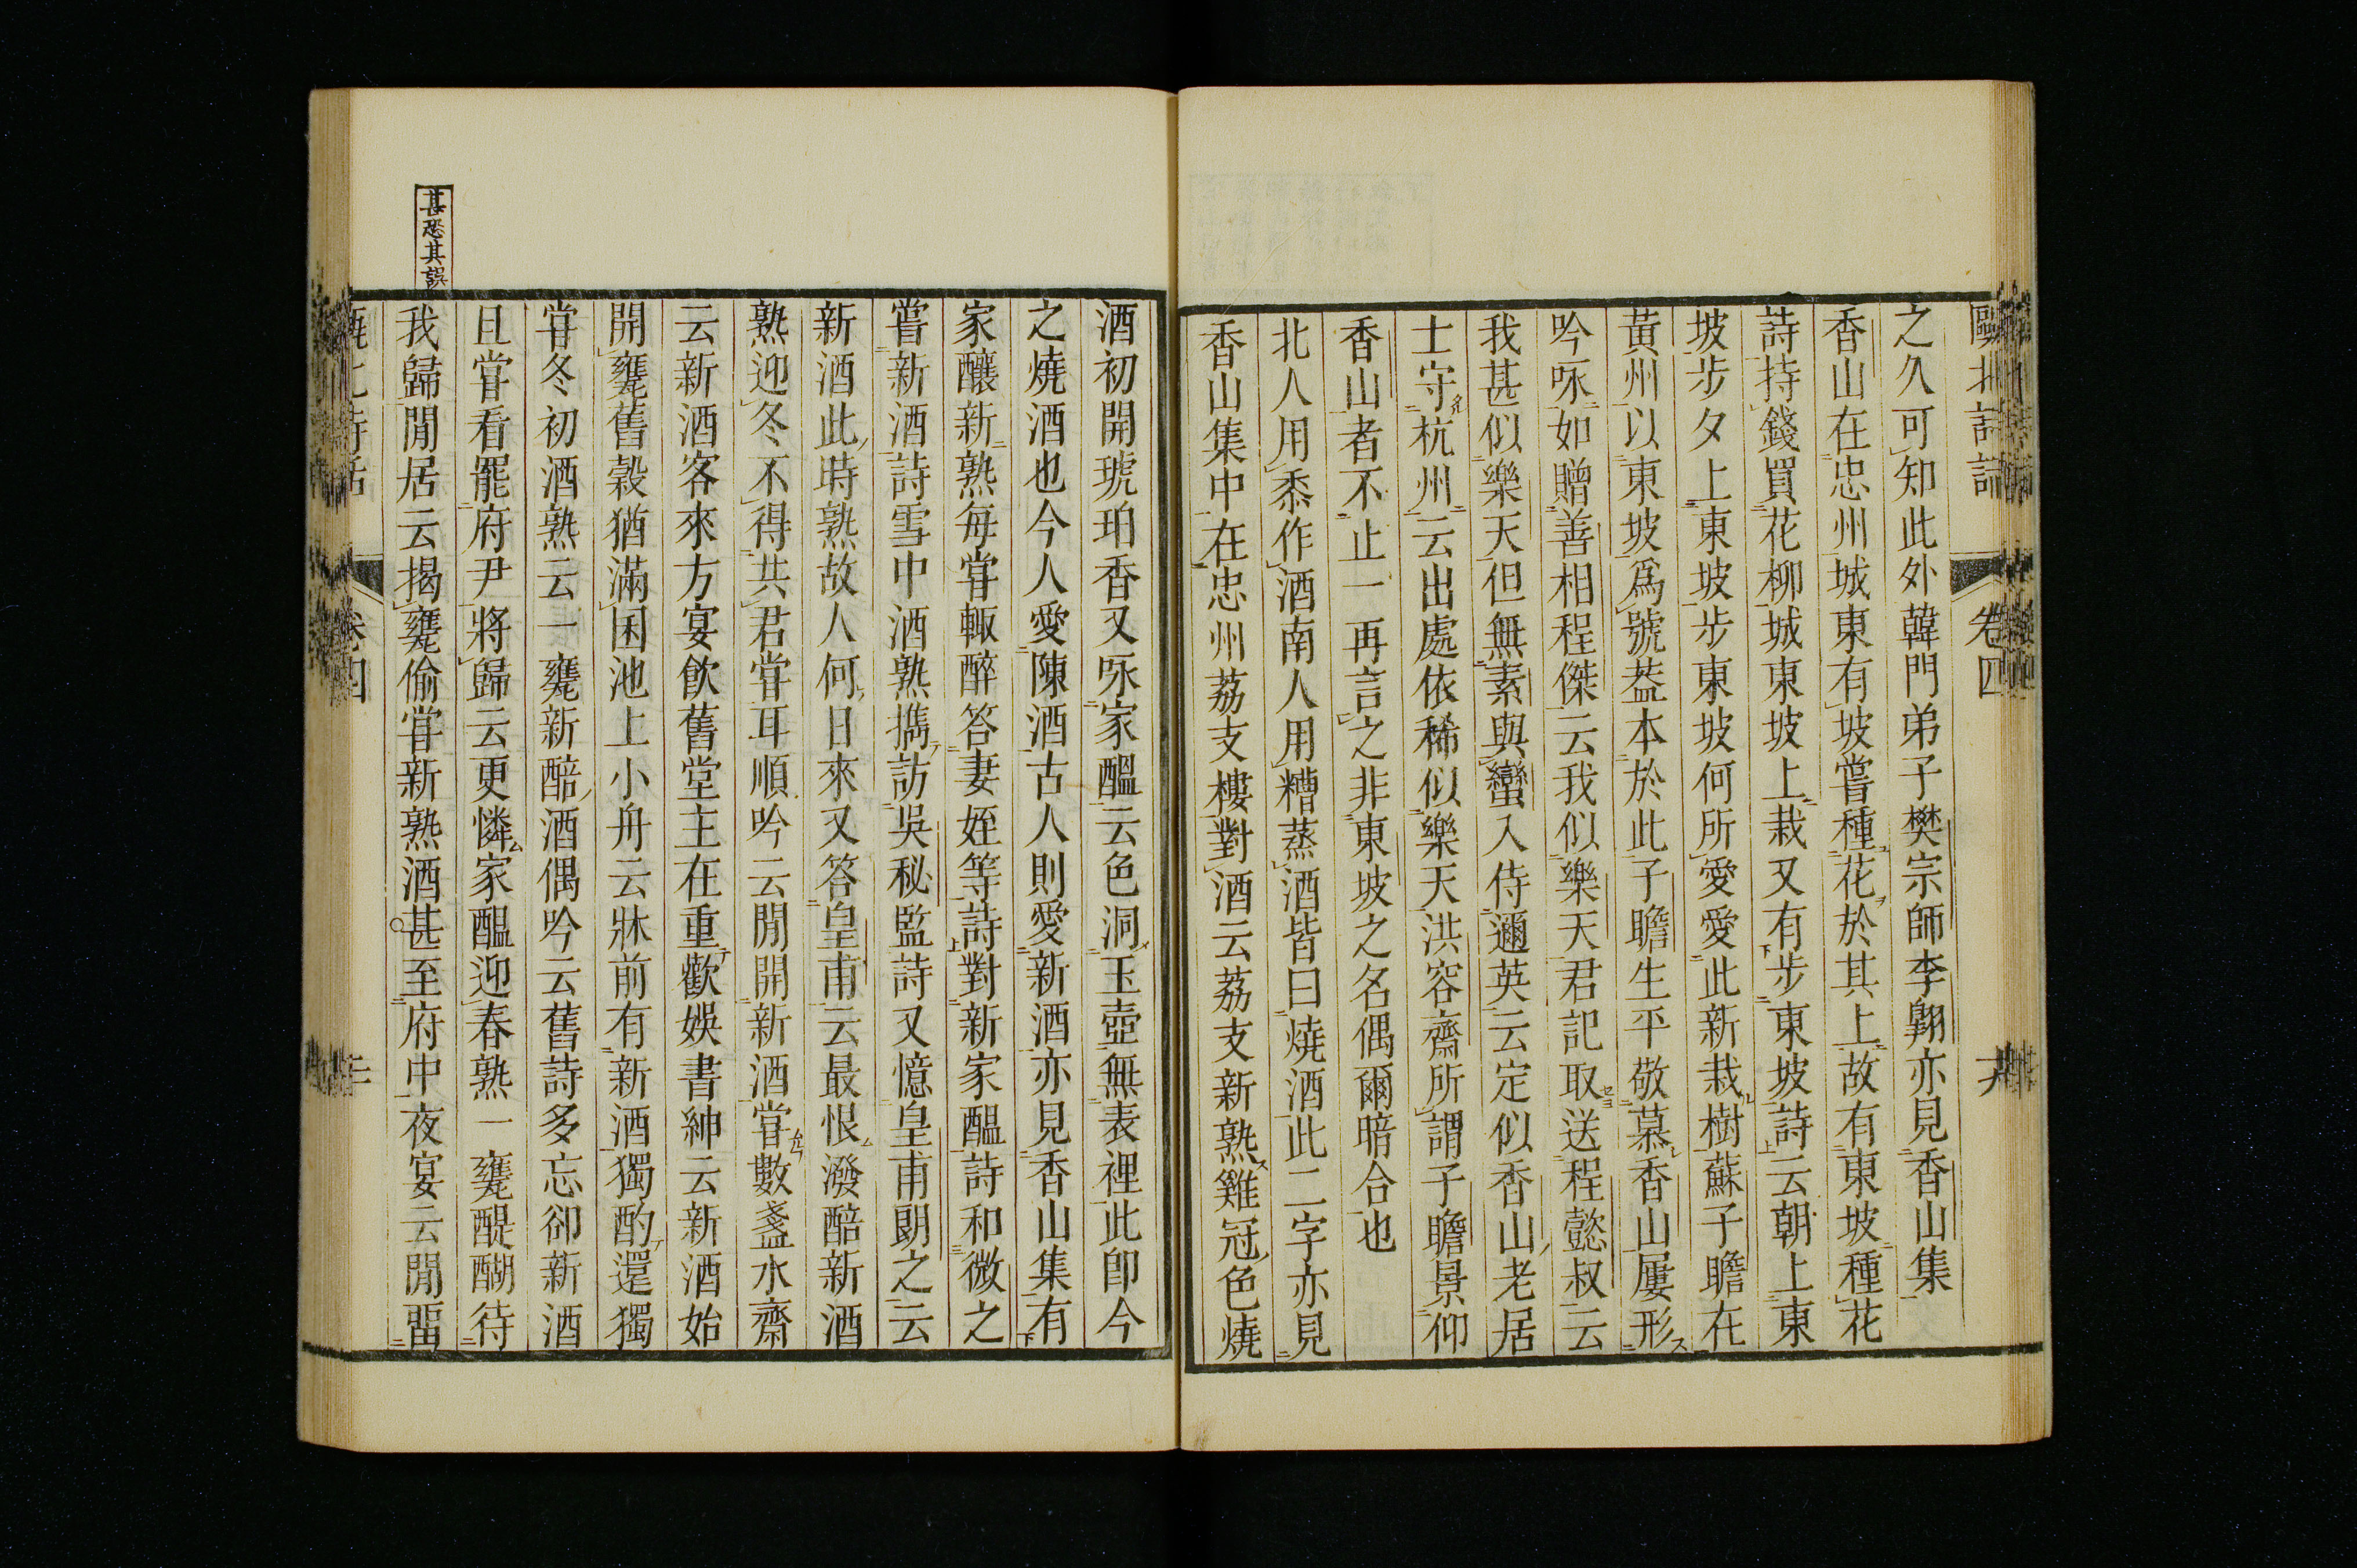 甌北詩話 卷四
之久可知此外韓門弟子樊宗師李翺亦見香山集
香山在忠州城東有坡嘗種花於其上故有東坡種花
詩持錢買花柳城東坡上栽又有步東坡詩云朝上東
坡步夕上東坡步東坡何所愛愛此新栽樹蘇子瞻在
黃州以東坡爲號蓋本於此子瞻生平敬慕香山屢形
吟咏如贈善相程傑云我似樂天君記取送程懿叔云
我甚似樂天但無素與蠻入侍邇英云定似香山老居
士守杭州云出處依稀似樂天洪容齋所謂子瞻景仰
香山者不止一再言之非東坡之名偶爾暗合也
北人用黍作酒南人用糟蒸酒皆曰燒酒此二字亦見
香山集中在忠州荔支樓對酒云荔支新熟雞冠色燒
酒初開琥珀香又咏家醖云色洞玉壺無表裡此卽今
之燒酒也今人愛陳酒古人則愛新酒亦見香山集有
家釀新熟每嘗輙醉答妻姪等詩對新家醖詩和微之
嘗新酒詩雪中酒熟攜訪吳秘監詩又憶皇甫朗之云
新酒此時熟故人何日來又答皇甫云最恨潑醅新酒
熟迎冬不得共君嘗耳順吟云閒開新酒嘗數盞水齋
云新酒客來方宴飮舊堂主在重歡娛書紳云新酒始
開甕舊穀猶滿囷池上小舟云牀前有新酒獨酌還獨
嘗冬初酒熟云一甕新醅酒偶吟云舊詩多忘卻新酒
且嘗看罷府尹將歸云更憐家醖迎春熟一甕醍醐待
我歸閒居云揭甕偷嘗新熟酒甚至府中夜宴云閒畱
甚恐其誤
卷四